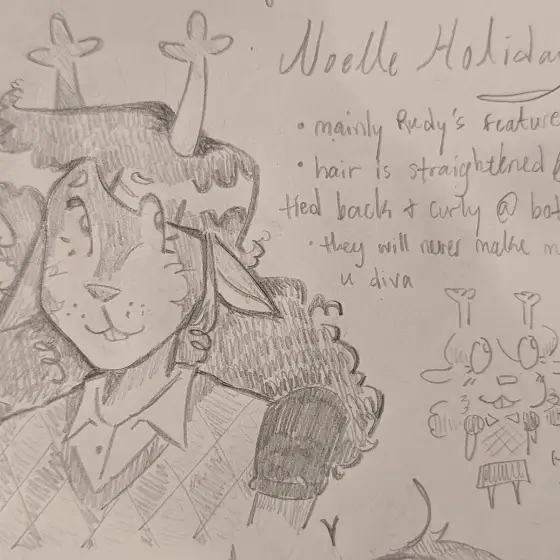 Noelle Holida
• mainly Rudy's feature
• hair is straightened
tied back & curly @ bot
• they will never make m
u diva